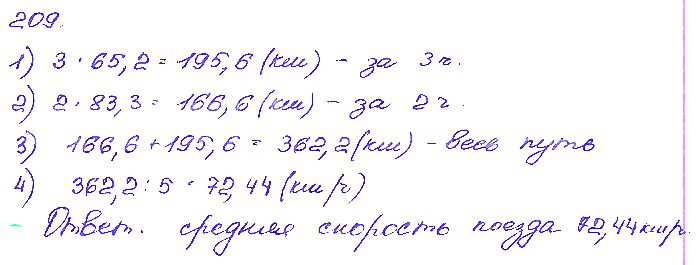 209.
1) 3 · 65,2 = 195,6 (км) – за 3 ч.
2) 2 · 83,3 = 166,6 (км) – за 2 ч.
3) 166,6 + 195,6 = 362,2 (км) – весь путь
4) 362,2 : 5 = 72,44 (км/ч)
Ответ. средняя скорость поезда 72,44 км/ч.